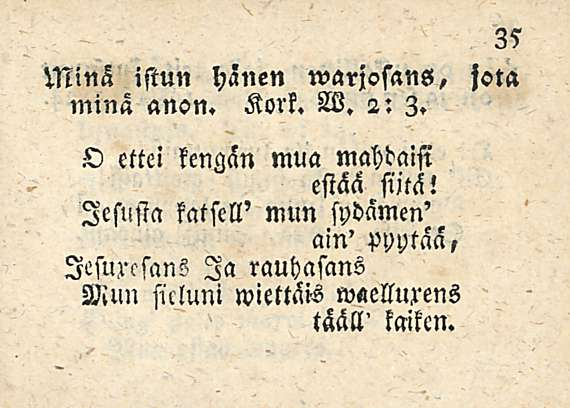 35
Minä istun hänen warjosans, jota
minä anon. Kork. W. 2: 3.
O ettei kengän mua mahdaisi
estää siitä!
Jesusta katsell' mun sydämen'
ain' pyytää,
Jesuxesans Ja rauhasans
Mun sieluni wiettäis waelluxens
tääll' kaiken.